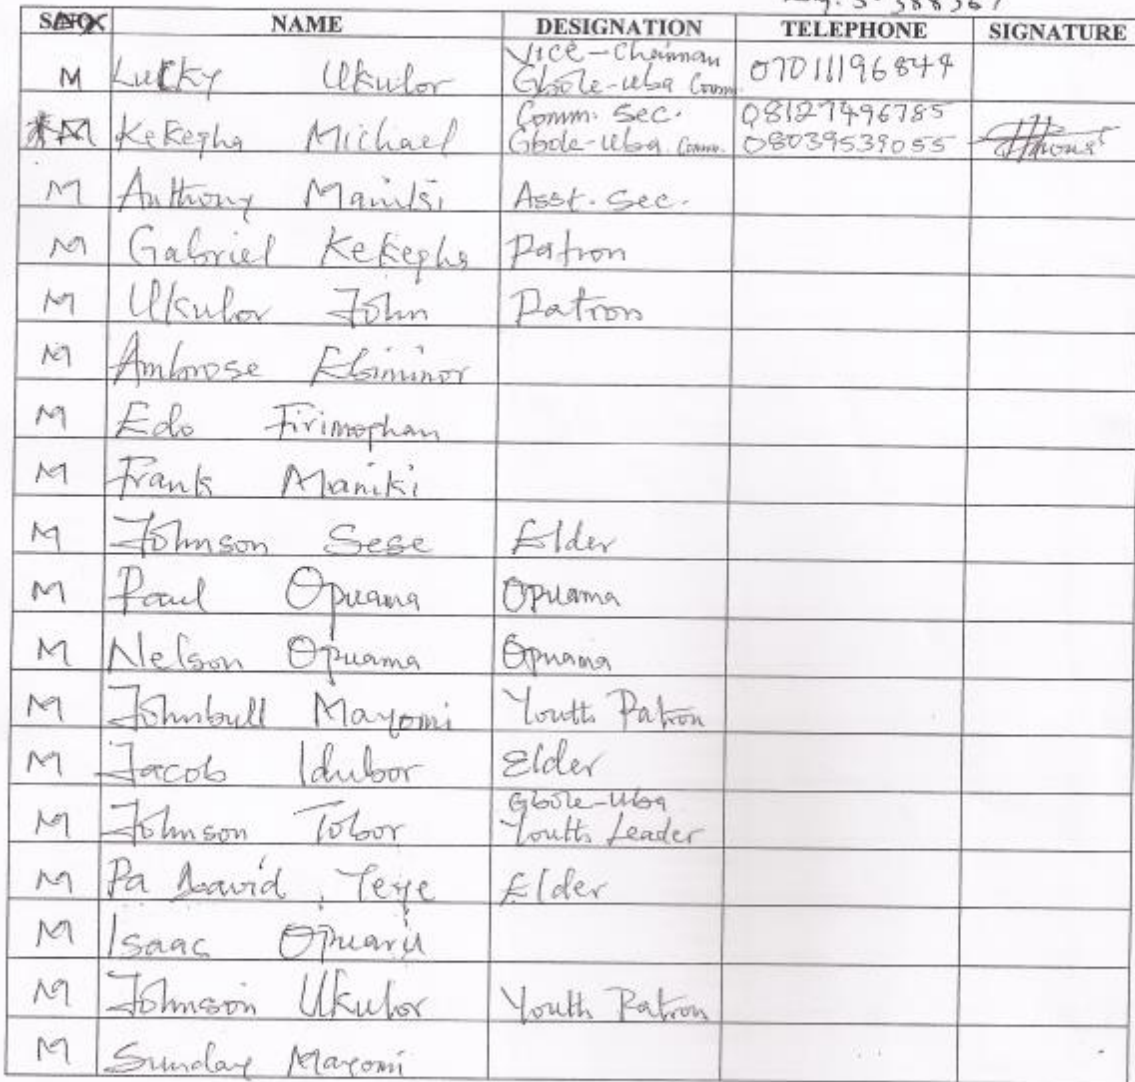 SEX NAME DESIGNATION TELEPHONE SIGNATURE
M Lucky Ukulor Vice-Chairman 07011196844
Gbole-Uba Comm.
M Kekegha Michael Comm. Sec. 08127496785
Gbole-Uba Comm. 08039539055
M Anthony Maniki Asst. Sec.
M Gabriel Kekegha Patron
M Ukulor John Patron
M Ambrose Ebiminor
M Edo Firimophan
M Frank Maniki
M Johnson Sese Elder
M Paul Opuama Opuama
M Nelson Opuama Opuama
M Johnbull Mayomi Youth Patron
M Jacob Idubor Elder
M Johnson Tobor Gbole-Uba
Youth Leader
M Pa David Teye Elder
M Isaac
M Johnson Ukulor Youth Patron
M Sunday Mayomi